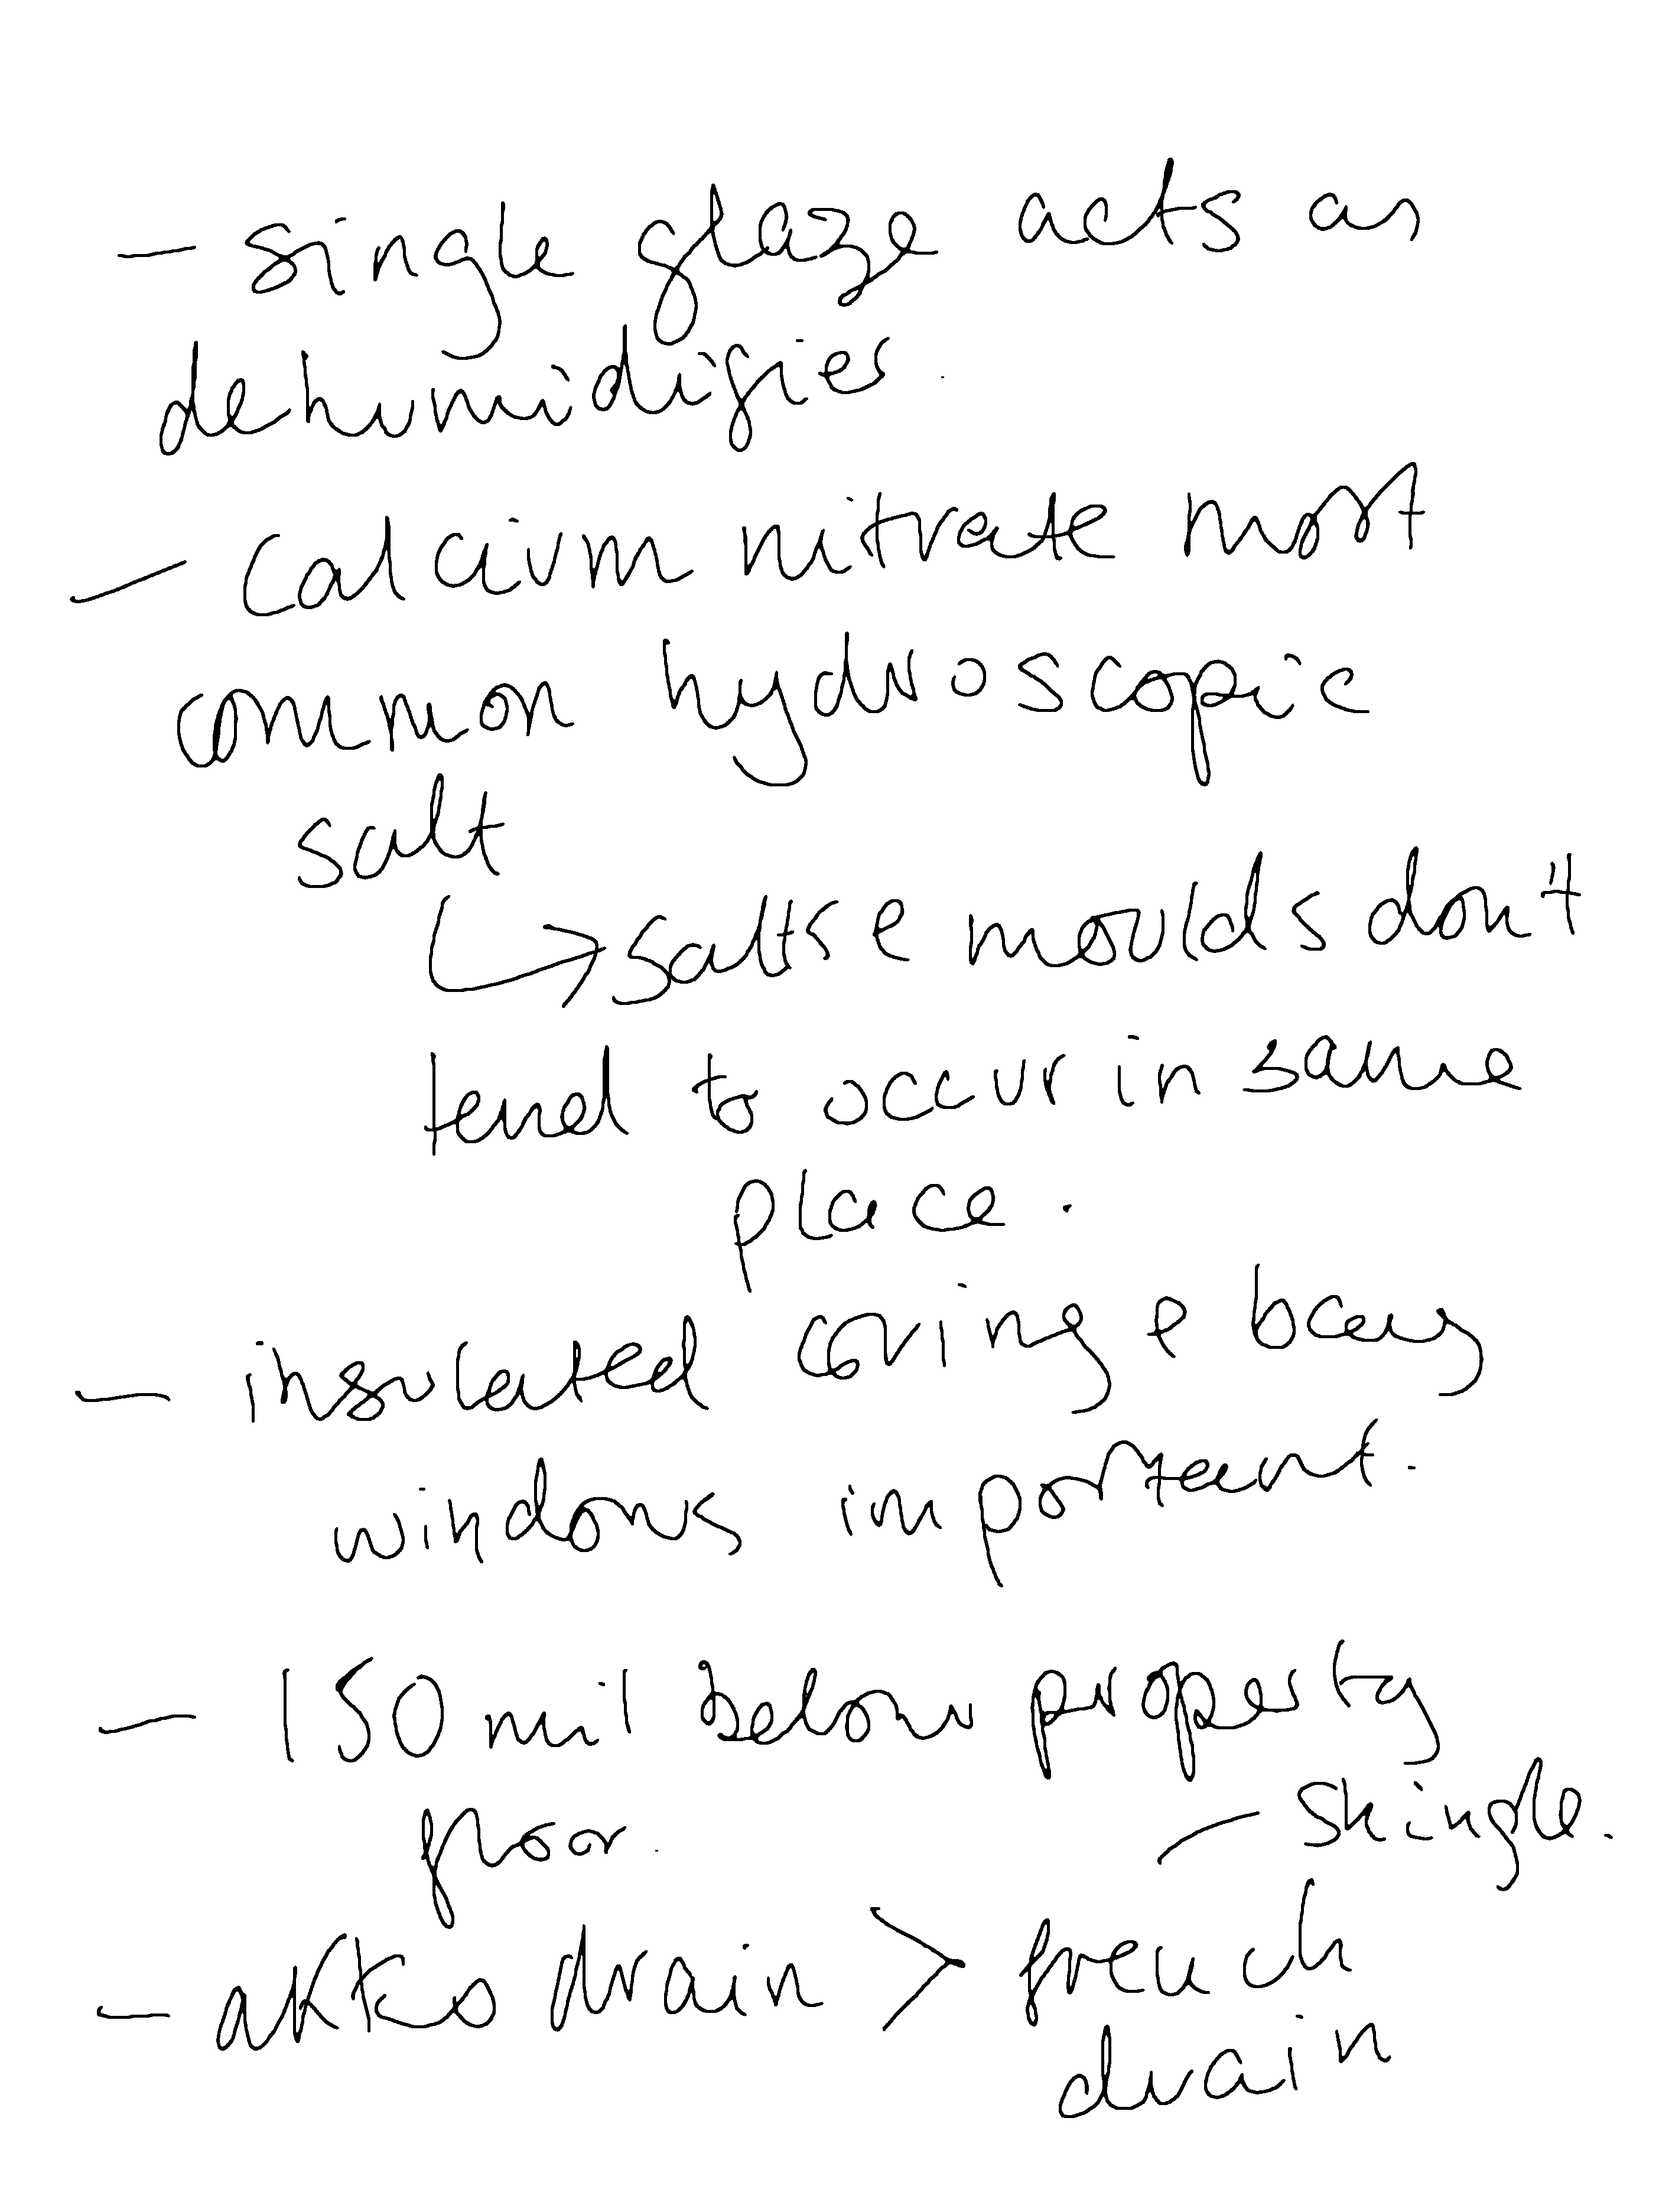 - single glaze acts as
dehumidifier.
- Calcium nitrate most
common hydroscopic
salt
↳ salts e moulds don't
tend to occur in same
place.
- insulated coving e bay
windows important.
- 150 mil below property
floor.
- shingle.
- akko drain > french
drain